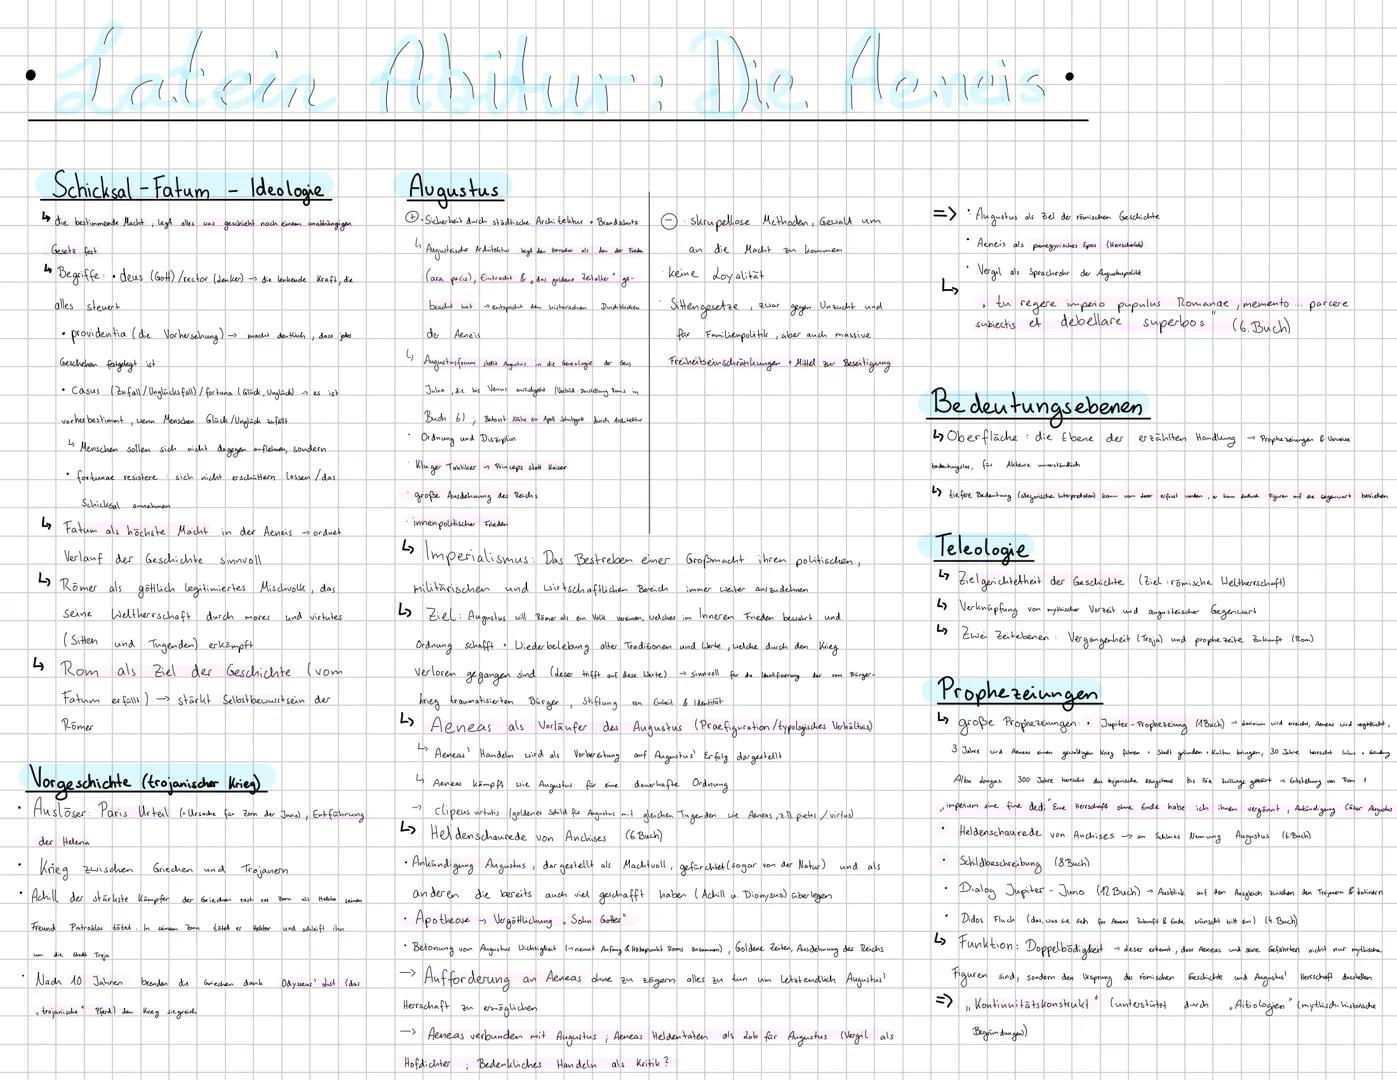 • Latein Abitur: Die Aeneis •
Schicksal-Fatum - Ideologie
↳ die bestimmende Macht, legt alles was geschieht nach einem unabhängigen
Gesetz fest
↳ Begriffe: • deus (Gott)/rector (Lenker) → die lenkende Kraft, die
alles steuert
• providentia (die Vorhersehung) → macht deutlich, dass jedes
Geschehen festgelegt ist
• Casus (Zufall/Unglücksfall)/fortuna (Glück, Unglück) → es ist
vorherbestimmt, wenn Menschen Glück/Unglück zufällt
↳ Menschen sollen sich nicht dagegen auflehnen, sondern
• fortunae resistere: sich nicht erschüttern lassen/das
Schicksal annehmen
↳ Fatum als höchste Macht in der Aeneis → ordnet
Verlauf der Geschichte sinnvoll
↳ Römer als göttlich legitimiertes Mischvolk, das
seine Weltherrschaft durch mores und virtutes
(Sitten und Tugenden) erkämpft
↳ Rom als Ziel der Geschichte (vom
Fatum erfüllt) → stärkt Selbstbewusstsein der
Römer
Vorgeschichte (trojanischer Krieg)
• Auslöser: Paris Urteil (→Ursache für Zorn der Juno), Entführung
der Helena
• Krieg zwischen Griechen und Trojanern
• Achill der stärkste Kämpfer der Griechen rast vor Zorn als Hektor seinen
Freund Patroklos tötet. In seinem Zorn tötet er Hektor und schleift ihn
um die Stadt Troja
• Nach 10 Jahren beenden die Griechen dank Odysseus' List (das
„trojanische" Pferd) den Krieg siegreich
Augustus
⊕ • Sicherheit durch städtische Architektur + Brandschutz
↳ Augusteische Architektur zeigt den Herrscher als den der Frieden
(ara pacis), Eintracht & „das goldene Zeitalter" ge-
bracht hat → entspricht den historischen Durchblicken
der Aeneis
↳ Augustusforum stellt Augustus in die Genealogie der Gens
Julia, die bis Venus zurückgeht
Buch 6); Betont Nähe zu Apoll Schutzgott durch Architektur
• Ordnung und Disziplin
• Kluger Taktiker → Princeps statt Kaiser
• große Ausdehnung des Reichs
• innenpolitischer Frieden
⊖ • skrupellose Methoden, Gewalt um
an die Macht zu kommen
• keine Loyalität
• Sittengesetze, zwar gegen Unzucht und
für Familienpolitik, aber auch massive
Freiheitseinschränkungen + Mittel zur Beseitigung
↳ Imperialismus: Das Bestreben einer Großmacht ihren politischen,
militärischen und wirtschaftlichen Bereich immer weiter auszudehnen
↳ Ziel: Augustus will Römer als ein Volk vereinen, welches im Inneren Frieden bewahrt und
Ordnung schafft + Wiederbelebung alter Traditionen und Werte, welche durch den Krieg
verloren gegangen sind (dieser trifft auf diese Werte) → sinnvoll für die Identifizierung der vom Bürger-
krieg traumatisierten Bürger, Stiftung von Einheit & Identität
↳ Aeneas als Vorläufer des Augustus (Praefiguration/typologisches Verhältnis)
↳ Aeneas' Handeln wird als Vorbereitung auf Augustus' Erfolg dargestellt
↳ Aeneas kämpft wie Augustus für eine dauerhafte Ordnung
→ clipeus virtutis (goldener Schild für Augustus mit gleichen Tugenden wie Aeneas, z.B. pietas / virtus)
↳ Heldenschaurede von Anchises (6.Buch)
• Ankündigung Augustus, dargestellt als Machtvoll, gefürchtet (sogar von der Natur) und als
anderen die bereits auch viel geschafft haben (Achill u. Dionysus) überlegen
• Apotheose → Vergöttlichung „Sohn Gottes"
• Betonung von Augustus Wichtigkeit (→nennt Anfang & Höhepunkt Roms zusammen), Goldene Zeiten, Ausdehnung des Reichs
→ Aufforderung an Aeneas ohne zu zögern alles zu tun um letztendlich Augustus'
Herrschaft zu ermöglichen
→ Aeneas verbunden mit Augustus; Aeneas Heldentaten als Lob für Augustus (Vergil als
Hofdichter; Bedenkliches Handeln als Kritik?
=> • Augustus als Ziel der römischen Geschichte
• Aeneis als panegyrisches Epos (Herrscherlob)
• Vergil als Sprachrohr der Augustuspolitik
↳ „tu regere imperio pupulus Romanae, memento... parcere
subiectis et debellare superbos" (6.Buch)
Bedeutungsebenen
↳ Oberfläche: die Ebene der erzählten Handlung → Prophezeiungen & Verweise
bedeutungslos, für Akteure unverständlich
↳ tiefere Bedeutung (allegorische Interpretation) kann vom Leser erfasst werden, er kann dadurch Figuren auf die Gegenwart beziehen
Teleologie
↳ Zielgerichtetheit der Geschichte (Ziel: römische Weltherrschaft)
↳ Verknüpfung von mythischer Vorzeit und augusteischer Gegenwart
↳ Zwei Zeitebenen: Vergangenheit (Troja) und prophezeite Zukunft (Rom)
Prophezeiungen
↳ große Prophezeiungen: • Jupiter-Prophezeiung (1Buch) → Lavinium wird erreicht, Aeneas wird vergöttlicht,
3 Jahre wird Aeneas einen gewaltigen Krieg führen + Stadt gründen + Kultur bringen, 30 Jahre herrscht Iulus + Gründung
Alba Longas. 300 Jahre herrscht das trojanische Königshaus bis Ilia Zwillinge gebärt → Entstehung von Rom
„imperium sine fine dedi" Eine Herrschaft ohne Ende habe ich ihnen vergönnt, Ankündigung Cäsar Augustus
• Heldenschaurede von Anchises → am Schluss Nennung Augustus (6.Buch)
• Schildbeschreibung (8.Buch)
• Dialog Jupiter-Juno (12 Buch) → Ausblick auf den Ausgleich zwischen den Trojanern & Latinern
• Didos Fluch (das, was sie sich für Aeneas Zukunft & Ende wünscht tritt ein) (4.Buch)
↳ Funktion: Doppelbödigkeit → Leser erkennt, dass Aeneas und seine Gefährten nicht nur mythische
Figuren sind, sondern den Ursprung der römischen Geschichte und Augustus' Herrschaft darstellen
=> „Kontinuitätskonstrukt" (unterstützt durch „Aitiologien" (mythisch-historische
Begründungen)